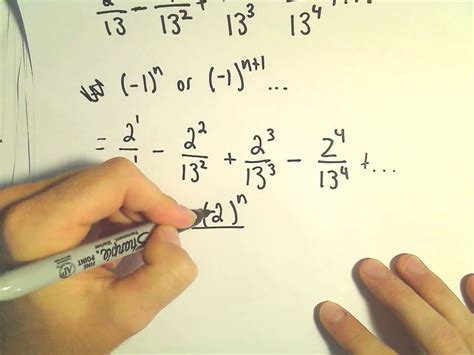 2 - +
13 13² 13³ 13⁴
(-1)ⁿ or (-1)ⁿ⁺¹ ...
= 2¹ - 2² + 2³ - 2⁴ + ...
13² 13³ 13⁴
(2)ⁿ
Sharpie. FINE POINT